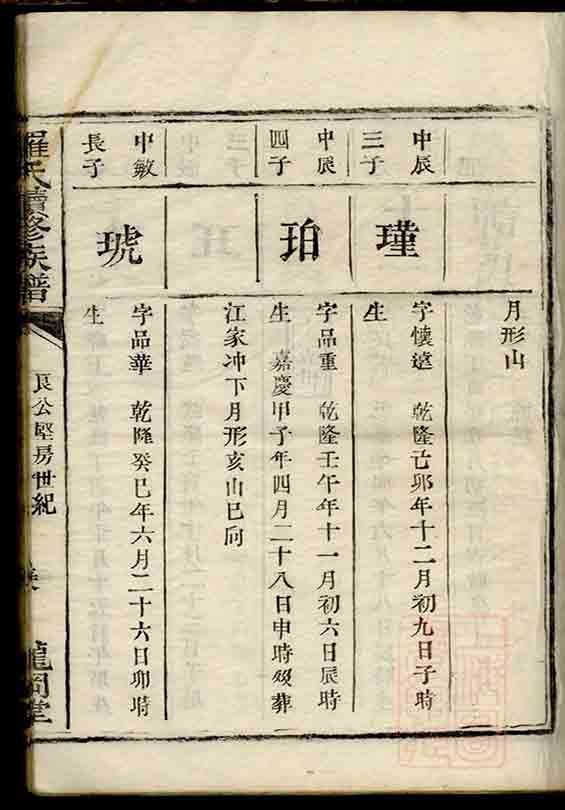 月形山
申辰
三子
瑾
字懷遠 乾隆己卯年十二月初九日子時
生
申辰
四子
珀
字品重 乾隆壬午年十一月初六日辰時
生 嘉慶甲子年四月二十八日申時歿葬
江家冲下月形亥山巳向
申敏
長子
琥
字品華 乾隆癸巳年六月二十六日卯時
生
羅氏續修族譜
良公堅房世紀